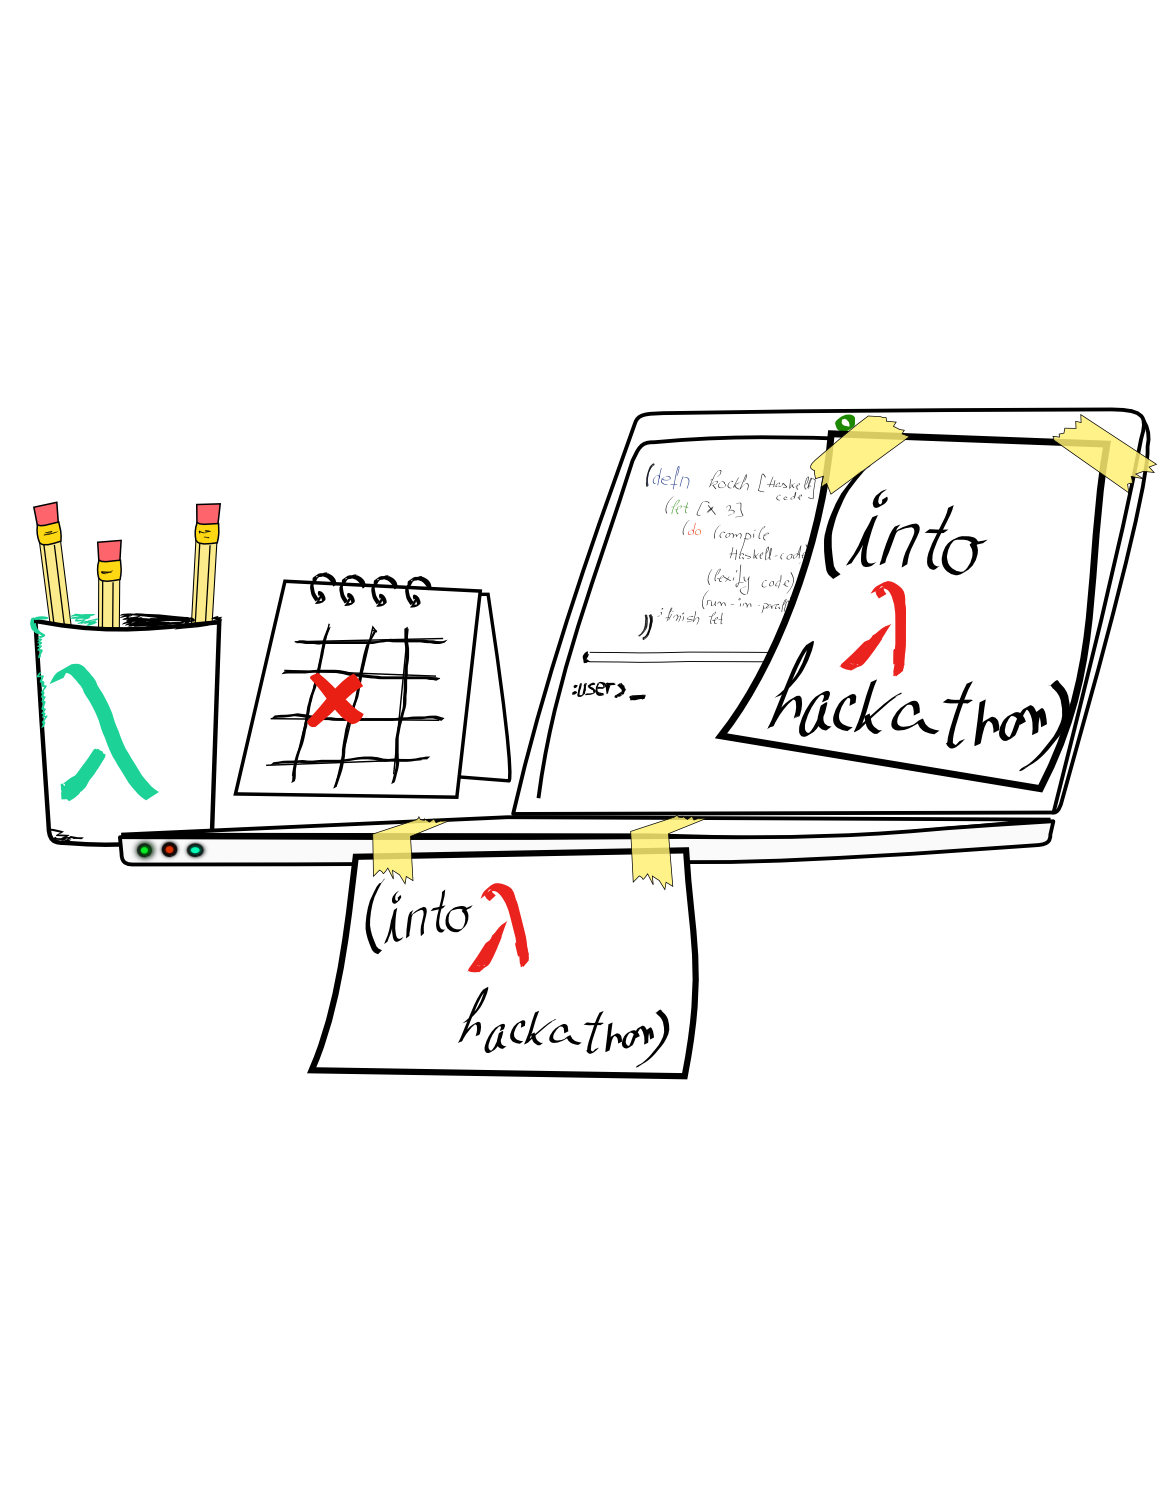 (defn kockh [Haskell
code]
(let [x 3]
(do (compile
Haskell-code
(lexify code)
(run-in-
)) ;finish let
:user>_
(into
λ
hackathon)
λ
(into λ
hackathon)